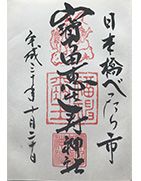 日本橋べったら市
寶田恵比寿神社
平成三十年十月二十日